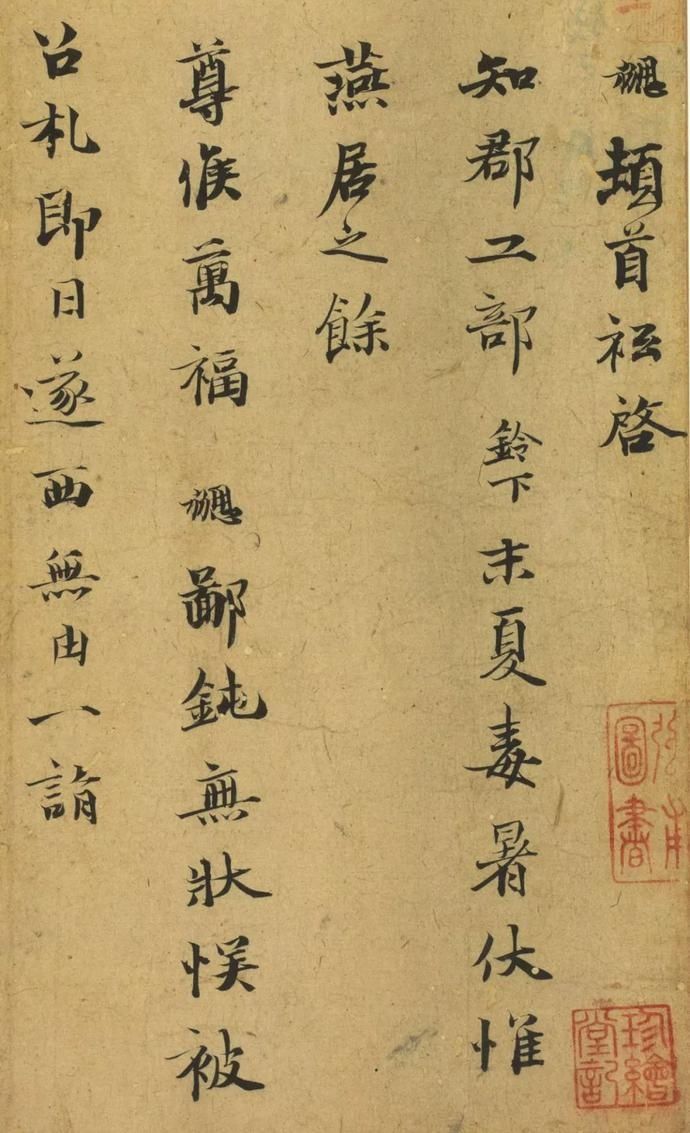 勰頓首祗啓
知郡工部鈴下末夏毒暑伏惟
燕居之餘
尊候萬福勰鄙鈍無狀悮被
召札即日遂西無由一詣
圖書
珍繪堂記